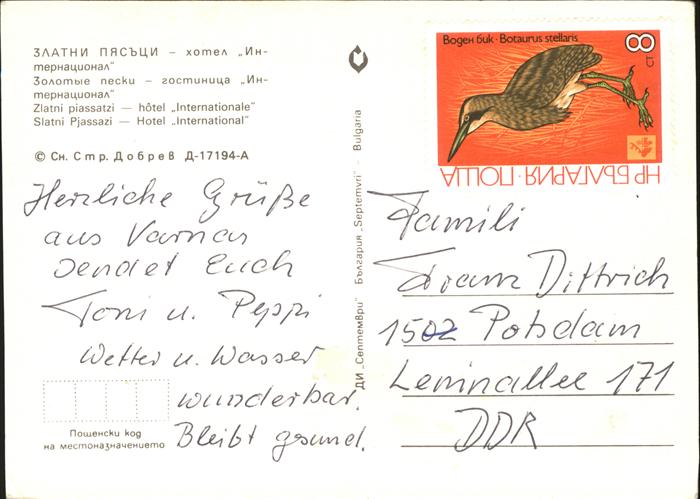 ЗЛАТНИ ПЯСЪЦИ – хотел „Ин-
тернационал"
Золотые пески – гостиница „Ин-
тернационал"
Zlatni piassatzi — hôtel „Internationale"
Slatni Pjassazi — Hotel „International"
© Сн. Стр. Добрев Д-17194-А
Herzliche Grüße
aus Varna
sendet Euch
Toni u. Peppi
Wetter u. Wasser
wunderbar.
Bleibt gesund.
Пощенски код
на местоназначението
ДИ „Септември" България „Septemvri" - Bulgaria
Воден бик · Botaurus stellaris
8 СТ
НР БЪЛГАРИЯ · ПОЩА
Famili
Franz Dittrich
1502 Potsdam
Leninallee 171
DDR